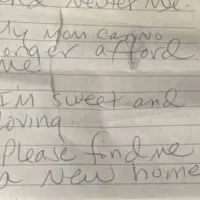 Neuter Me.
My Mom can no
longer afford
me
I'm sweet and
loving
Please find me
a New home